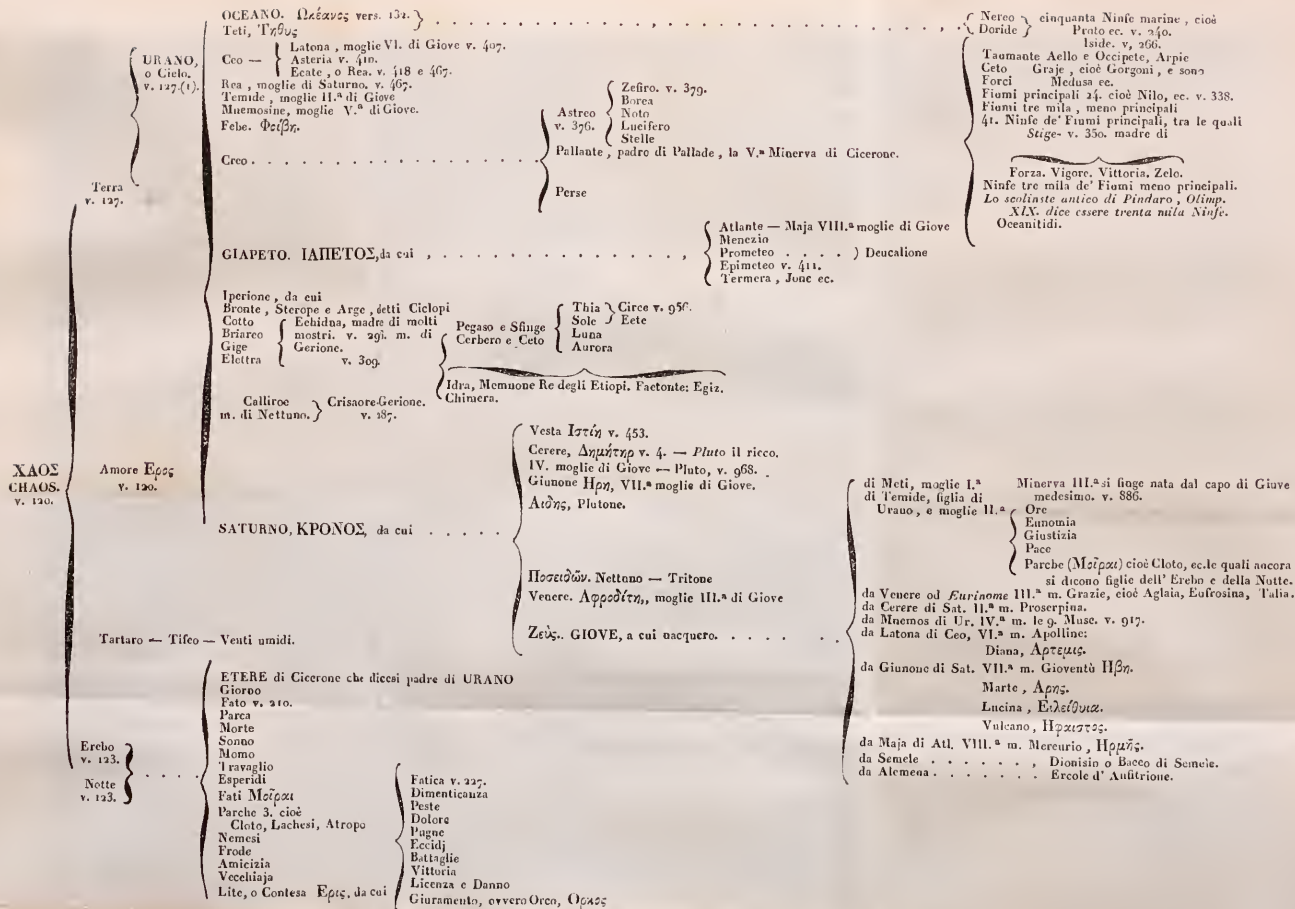 ΧΑΟΣ
CHAOS.
v. 120.
Terra
v. 127.
URANO,
o Cielo.
v. 127.(1).
OCEANO. Ωκέανος vers. 132.
Teti, Τηθυς
Ceo —
Latona , moglie VI. di Giove v. 407.
Asteria v. 410.
Ecate , o Rea. v. 418 e 467.
Rea , moglie di Saturno. v. 467.
Temide , moglie II.ª di Giove
Mnemosine, moglie V.ª di Giove.
Febe. Φοίβη.
Creo . . . . . . . . . . . . . . . . . .
Astreo
v. 376.
Zefiro. v. 379.
Borea
Noto
Lucifero
Stelle
Pallante , padro di Pallade , la V.ª Minerva di Cicerone.
Perse
Nereo
Doride
cinquanta Ninfe marine , cioè
Proto ec. v. 240.
Iside. v, 266.
Taumante Aello e Occipete, Arpie
Ceto Graje , cioè Gorgoni , e sono
Forci Medusa ec.
Fiumi principali 24. cioè Nilo, ec. v. 338.
Fiumi tre mila , meno principali
41. Ninfe de' Fiumi principali, tra le quali
Stige- v. 350. madre di
Forza. Vigore. Vittoria. Zelo.
Ninfe tre mila de' Fiumi meno principali.
Lo scoliaste antico di Pindaro , Olimp.
XIX. dice essere trenta mila Ninfe.
Oceanitidi.
GIAPETO. ΙΑΠΕΤΟΣ,da cui , . . . . . . . . . . . . . . . . . ,
Atlante — Maja VIII.ª moglie di Giove
Menezio
Prometeo . . . . ) Deucalione
Epimeteo v. 411.
Termera , June ec.
Iperione , da cui
Bronte , Sterope e Arge , detti Ciclopi
Cotto
Briareo
Gige
Elettra
Echidna, madre di molti
mostri. v. 291. m. di
Gerione.
v. 309.
Pegaso e Sfinge
Cerbero e Ceto
Thia
Sole
Luna
Aurora
Circe v. 956.
Eete
Idra, Memnone Re degli Etiopi. Faetonte: Egiz.
Chimera.
Calliroe
m. di Nettuno.
Crisaore-Gerione.
v. 287.
Amore Ερος
v. 120.
SATURNO, ΚΡΟΝΟΣ, da cui . . . . . .
Vesta Ιστίη v. 453.
Cerere, Δημήτηρ v. 4. — Pluto il ricco.
IV. moglie di Giove — Pluto, v. 968.
Giunone Ηρη, VII.ª moglie di Giove.
Αιδης, Plutone.
Ποσειδῶν. Nettuno — Tritone
Venere. Αφροδίτη,, moglie III.ª di Giove
Ζεὺς.. GIOVE, a cui nacquero. . . . . .
di Meti, moglie I.ª Minerva III.ª si finge nata dal capo di Giuve
medesimo. v. 886.
di Temide, figlia di
Urano , e moglie II.ª
Ore
Eunomia
Giustizia
Pace
Parche (Μοῖραι) cioè Cloto, ec.le quali ancora
si dicono figlie dell' Erebo e della Notte.
da Venere od Eurinome III.ª m. Grazie, cioè Aglaia, Eufrosina, Talia.
da Cerere di Sat. II.ª m. Proserpina.
da Mnemos di Ur. IV.ª m. le 9. Muse. v. 917.
da Latona di Ceo, VI.ª m. Apolline:
Diana, Αρτεμις.
da Giunone di Sat. VII.ª m. Gioventù Ηβη.
Marte , Αρης.
Lucina , Ειλείθυια.
Vulcano , Ηφαιστος.
da Maja di Atl. VIII.ª m. Mercurio , Ηρμῆς.
da Semele . . . . . . , Dionisio o Bacco di Semele.
da Alcmena . . . . . . . Ercole d' Anfitrione.
Tartaro — Tifeo — Venti umidi.
Erebo
v. 123.
Notte
v. 123.
ETERE di Cicerone che dicesi padre di URANO
Giorno
Fato v. 210.
Parca
Morte
Sonno
Momo
Travaglio
Esperidi
Fati Μοῖραι
Parche 3. cioè
Cloto, Lachesi, Atropo
Nemesi
Frode
Amicizia
Vecchiaja
Lite, o Contesa Ερις, da cui
Fatica v. 227.
Dimenticanza
Peste
Dolore
Pugne
Eccidj
Battaglie
Vittoria
Licenza e Danno
Giuramento, ovvero Orco, Ορκος